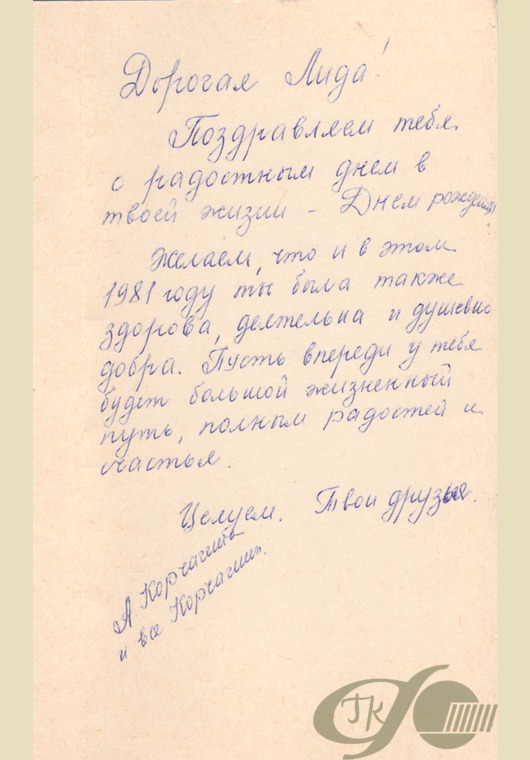 Дорогая Лида!
Поздравляем тебя
с радостным днем в
твоей жизни - Днем рождения
Желаем, что и в этом
1981 году ты была также
здорова, деятельна и душевно
добра. Пусть впереди у тебя
будет большой жизненный
путь, полным радостей и
счастья.
Целуем. Твои друзья.
А. Корчагина
и все Корчагины.
ГК